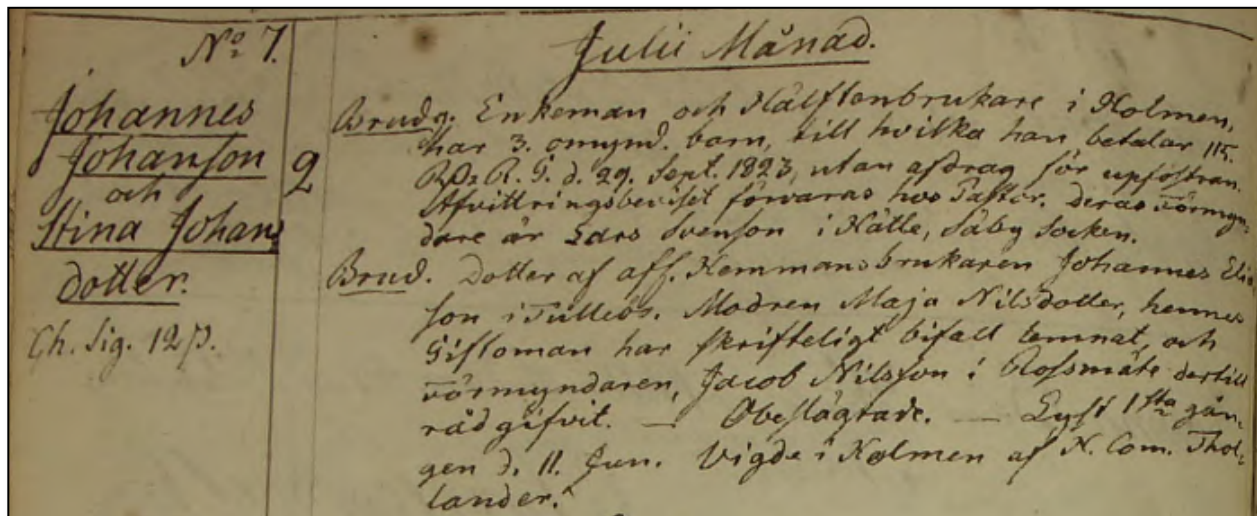 No 7.
Julii Månad.
Johannes
Johanson
och
Stina Johans
dotter.
Ch. Sig. 12 β.
2
Brudg. Enkeman och Hälftenbrukare i Holmen,
har 3. omynd. barn, till hvilka han betalar 115.
R. G. d. 29. Sept. 1823, utan afdrag för upfostran.
Afvittringsbeviset förvaras hos Pastor. deras Förmyn-
dare är Lars Svenson i Hätte, Säby Socken.
Brud. Dotter af afl. Hemmansbrukaren Johannes
son i Modren Maja Nilsdotter, hennes
Giftoman har skrifteligt bifall lemnat, och
Förmyndaren, Jacob Nilsson i dertill
råd gifvit. — Obeslägtade. — Lyst 1sta gån-
gen d. 11. Jun. Vigde i Holmen af N. Com. Thol-
lander.